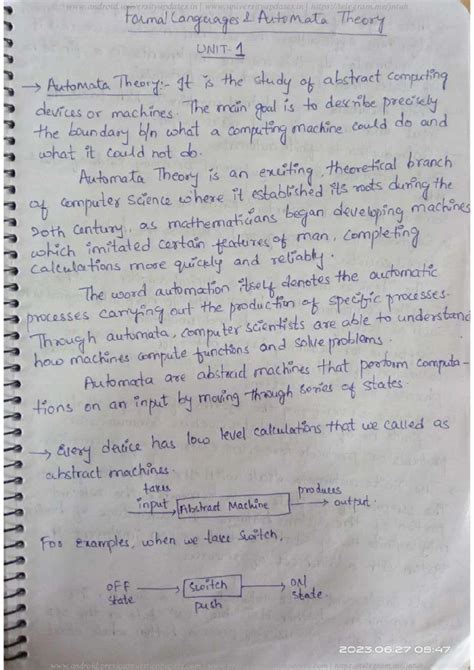 www.android.universityupdates.in | www.universityupdates.in | https://telegram.me/jntuh
Formal Languages & Automata Theory
UNIT-1
→ Automata Theory:- It is the study of abstract computing
devices or machines. The main goal is to describe precisely
the boundary b/n what a computing machine could do and
what it could not do.
Automata Theory is an exciting, theoretical branch
of computer science where it established its roots during the
20th Century, as mathematicians began developing machines
which imitated certain features of man, completing
calculations more quickly and reliably.
The word automation itself denotes the automatic
processes carrying out the production of specific processes.
Through automata, computer scientists are able to understand
how machines compute functions and solve problems.
Automata are abstract machines that perform computa-
tions on an input by moving through series of states.
→ Every device has low level calculations that we called as
abstract machines.
takes produces
input → Abstract Machine → output.
For examples, when we take switch,
OFF → Switch → ON
state push state.
2023.06.27 08:47
www.android.universityupdates.in | www.universityupdates.in | https://telegram.me/jntuh